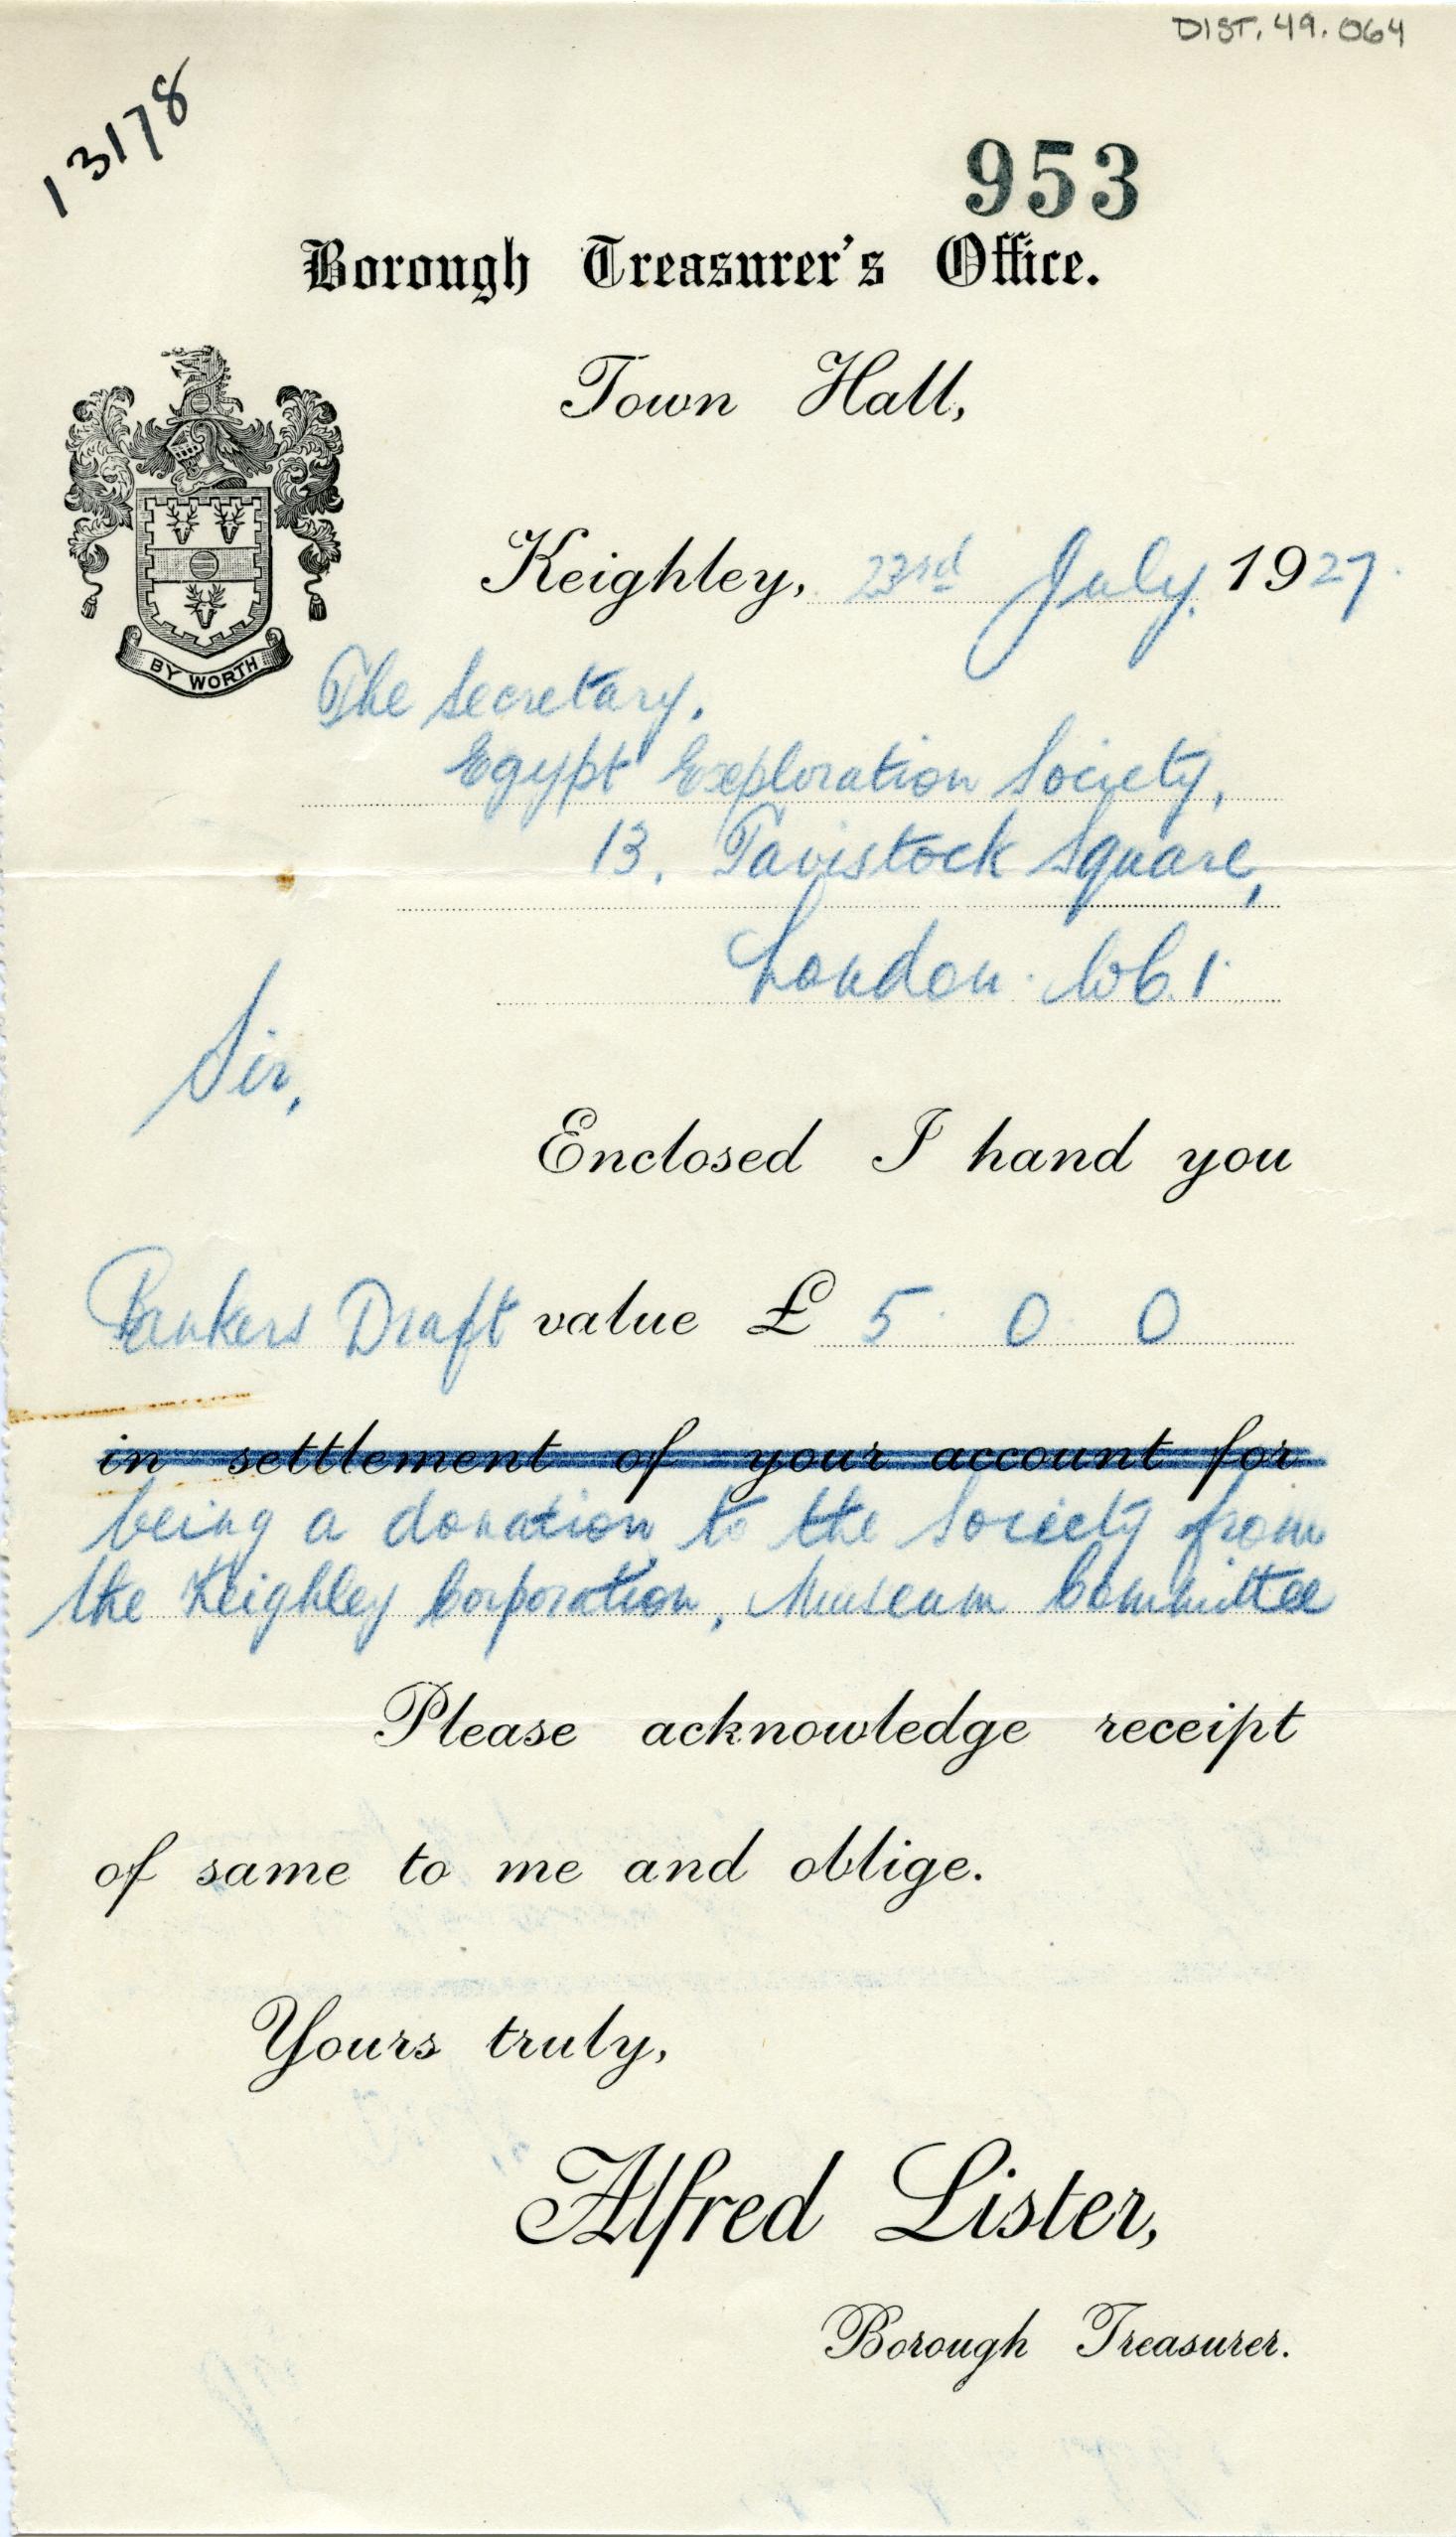 DIST. 49. 064
13178
953
Borough Treasurer's Office.
Town Hall,
Keighley, 23rd July. 1927.
BY WORTH
The Secretary.
Egypt Exploration Society,
13. Tavistock Square,
London. W.C.1.
Sir,
Enclosed I hand you
Bankers Draft value £ 5. 0. 0
in settlement of your account for
being a donation to the Society from
the Keighley Corporation, Museum Committee
Please acknowledge receipt
of same to me and oblige.
Yours truly,
Alfred Lister,
Borough Treasurer.